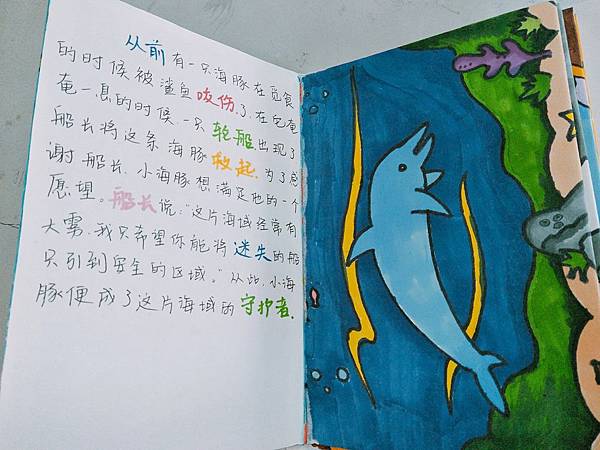 从前有一只海豚在觅食
的时候被鲨鱼咬伤了.在它奄
奄一息的时候.一只轮船出现了
船长将这条海豚救起.为了感
谢船长.小海豚想满足他的一个
愿望。船长说:"这片海域经常有
大雾.我只希望你能将迷失的船
只引到安全的区域。"从此.小海
豚便成了这片海域的守护者.